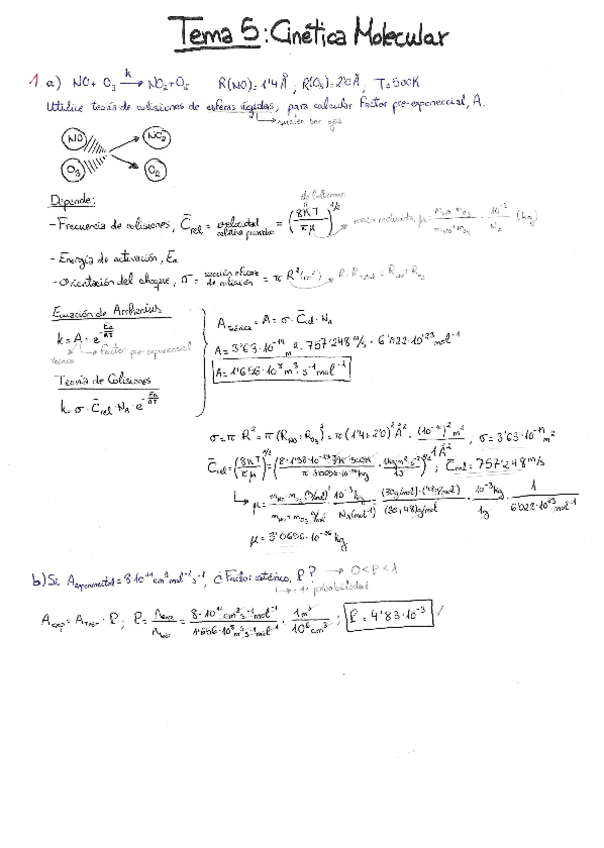 Tema 5: Cinética Molecular
1. a) NO + O₃ →k NO₂ + O₂ R(NO)=1'4 Å, R(O₃)=2'0 Å, T=500K
Utilice teoría de colisiones de esferas rígidas, para calcular Factor pre-exponencial, A.
suelen ser gas
NO NO₂
O₃ O₂
Depende:
de Boltzmann
- Frecuencia de colisiones, C̄rel = velocidad relativa promedio = (8KT/πμ)^1/2 masa reducida, μ = (mNO · mO₃)/(mNO + mO₃) · 10⁻³/NA (kg)
- Energía de activación, Ea
- Orientación del choque, σ = sección eficaz de colisión = π R² (m²)
Ecuación de Arrhenius
k = A · e^-Ea/RT
Factor pre-exponencial
Teoría de Colisiones
k = σ · C̄rel · NA · e^-Ea/RT
A teórica = A = σ · C̄rel · NA
A = 3'63·10⁻¹⁹ m² · 757'248 m/s · 6'022·10²³ mol⁻¹
A = 1'656·10⁸ m³ · s⁻¹ mol⁻¹
σ = π R² = π (RNO + RO₃)² = π (1'4 + 2'0)² Å² · (10⁻¹⁰)² m²/1 Å² ; σ = 3'63·10⁻¹⁹ m²
C̄rel = (8KT/πμ)^1/2 = (8 · 1'38·10⁻²³ J/K · 500K / π 3'0656·10⁻²⁶ kg · 1kg m² s⁻²/1J)^1/2 ; C̄rel = 757'248 m/s
μ = (mNO · mO₃ (g/mol))/(mNO + mO₃ g/mol) · 10⁻³ kg/NA (mol⁻¹) = (30 g/mol)·(48 g/mol)/(30+48) g/mol · 10⁻³ kg/1g · 1/6'022·10²³ mol⁻¹
μ = 3'0656·10⁻²⁶ kg
b) Si Aexperimental = 8·10¹¹ cm³ mol⁻¹ s⁻¹, ¿Factor estérico, P? → 0<P<1
probabilidad
Aexp = Ateór · P ; P = Aexp/Ateór = 8·10¹¹ cm³ s⁻¹ mol⁻¹/1'656·10⁸ m³ s⁻¹ mol⁻¹ · 1m³/10⁶ cm³ ; P = 4'83·10⁻³